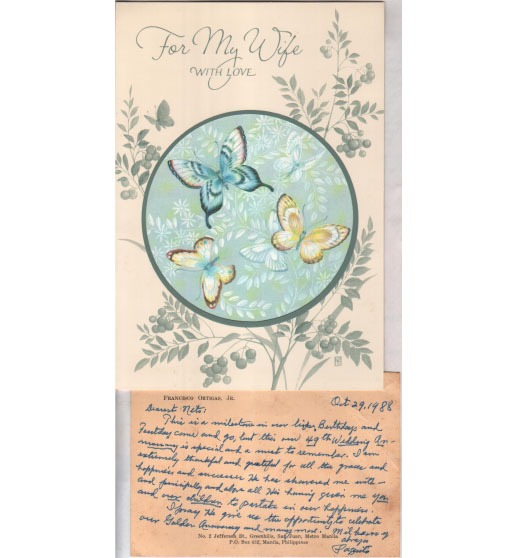 For My Wife
WITH LOVE
FRANCISCO ORTIGAS, JR.
Oct 29, 1988
Dearest Nets:
This is a milestone in our life, Birthdays and
Feastday come and go, but this our 49th Wedding An-
niversary is special and a must to remember. I am
extremely thankful and grateful for all the graces and
happiness and successes He has showered me with -
and principally and above all His having given me you
and our children to partake in our happiness.
I pray He give us the opportunity to celebrate
our Golden Anniversary and many more.
No. 2 Jefferson St., Greenhills, San Juan, Metro Manila
P.O. Box 412, Manila, Philippines
Mil besos y
abrazo